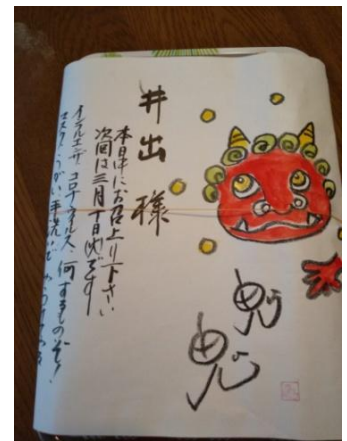 井出様
本日中にお召上り下さい
次回は三月十日(火)です
インフルエンザ、コロナウイルス、何するものぞ!
マスク、うがい、手洗い
鬼
鬼